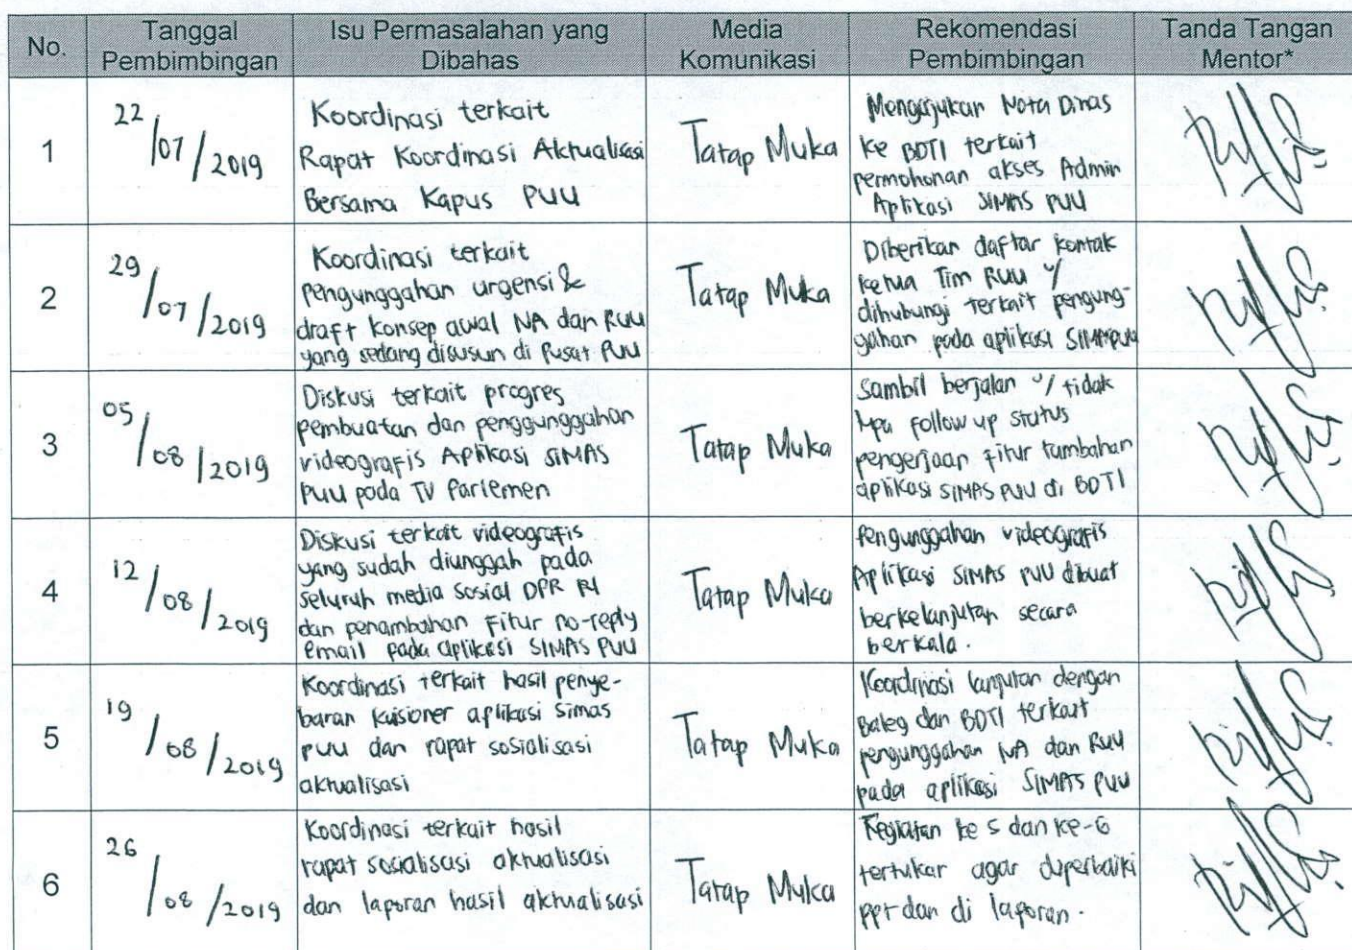 No.
Tanggal
Pembimbingan
Isu Permasalahan yang
Dibahas
Media
Komunikasi
Rekomendasi
Pembimbingan
Tanda Tangan
Mentor*
1
22/07/2019
Koordinasi terkait
Rapat Koordinasi Aktualisasi
Bersama Kapus PUU
Tatap Muka
Mengajukan Nota Dinas
ke BDTI terkait
permohonan akses Admin
Aplikasi SIMAS PUU
2
29/07/2019
Koordinasi terkait
pengunggahan urgensi &
draft konsep awal NA dan RUU
yang sedang disusun di Pusat PUU
Tatap Muka
Diberikan daftar kontak
ketua Tim RUU u/
dihubungi terkait pengung-
gahan pada aplikasi
3
05/08/2019
Diskusi terkait progres
pembuatan dan penggunggahan
videografis Aplikasi SIMAS
PUU pada TV Parlemen
Tatap Muka
Sambil berjalan u/ tidak
follow up status
pengerjaan fitur tambahan
aplikasi SIMAS PUU di BDTI
4
12/08/2019
Diskusi terkait videografis
yang sudah diunggah pada
seluruh media sosial DPR RI
dan penambahan fitur no-reply
email pada aplikasi SIMAS PUU
Tatap Muka
Pengunggahan videografis
Aplikasi SIMAS PUU dibuat
berkelanjutan secara
berkala.
5
19/08/2019
Koordinasi terkait hasil penye-
baran kuisioner aplikasi simas
PUU dan rapat sosialisasi
aktualisasi
Tatap Muka
Koordinasi lanjutan dengan
Baleg dan BDTI terkait
pengunggahan NA dan RUU
pada aplikasi SIMAS PUU
6
26/08/2019
Koordinasi terkait hasil
rapat sosialisasi aktualisasi
dan laporan hasil aktualisasi
Tatap Muka
Kegiatan ke 5 dan ke-6
tertukar agar diperbaiki
ppt dan di laporan.